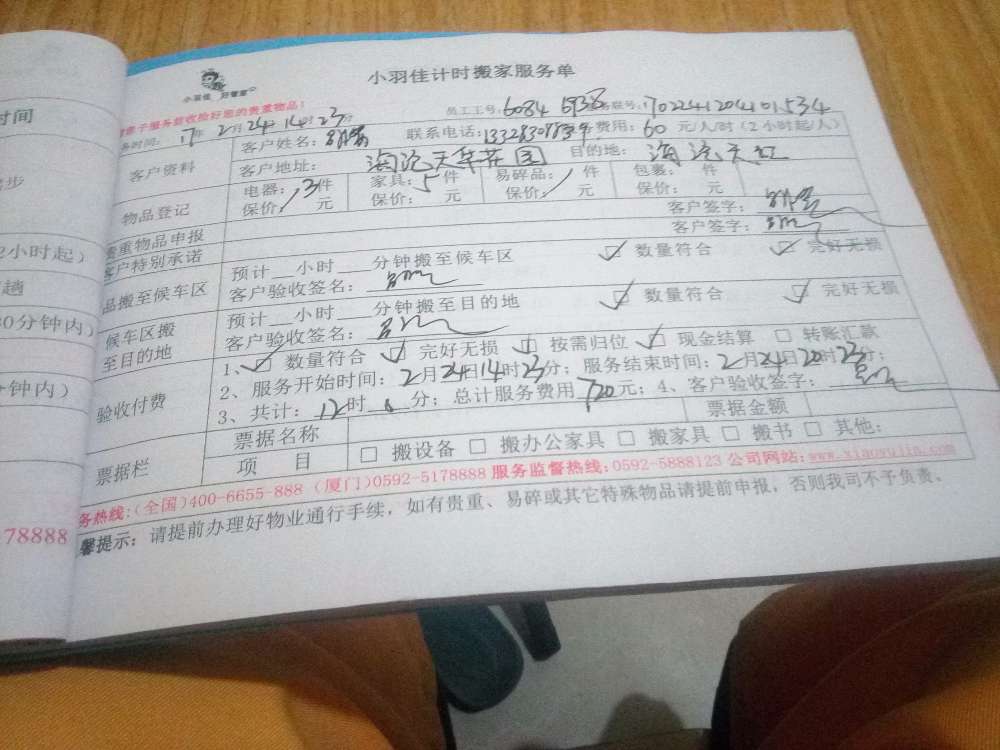 小羽佳计时搬家服务单
小羽佳 好管家
服务收检好您的贵重物品!
员工工号: 6084 联号: 1702241204101534
务时间: 17年2月24日14时23分 联系电话: 费用: 60 元/人/时(2小时起/人)
客户资料 客户姓名:
客户地址: 海沧天华花园 目的地: 海沧天虹
物品登记 电器: 3件 家具: 5件 易碎品: 1件 包裹: 件
保价: 元 保价: 元 保价: 元 保价: 元
贵重物品申报 客户签字:
客户特别承诺 客户签字:
品搬至候车区 预计__小时__分钟搬至候车区 数量符合 完好无损
客户验收签名:
候车区搬至目的地 预计__小时__分钟搬至目的地 数量符合 完好无损
客户验收签名:
验收付费 1、 数量符合 完好无损 按需归位 现金结算 转账汇款
2、服务开始时间: 2月24日14时23分; 服务结束时间: 2月24日20时23分;
3、共计: 12时 分; 总计服务费用 720元; 4、客户验收签字:
票据栏 票据名称 票据金额
项 目 搬设备 搬办公家具 搬家具 搬书 其他:
务热线:(全国)400-6655-888 (厦门)0592-5178888 服务监督热线:0592-5888123 公司网站: www.xiaoyujia.com
馨提示: 请提前办理好物业通行手续, 如有贵重、易碎或其它特殊物品请提前申报, 否则我司不予负责。
时间
步
2小时起)
趟
30分钟内)
分钟内)
78888